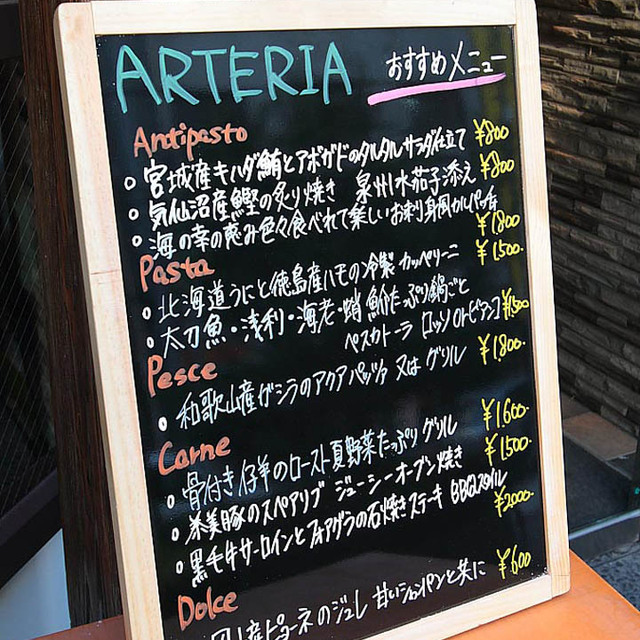 ARTERIA おすすめメニュー
Antipasto
。宮城産キハダ鮪とアボガドのタルタルサラダ仕立て ¥800
。気仙沼産鰹の炙り焼き 泉州水茄子添え ¥800
。海の幸の恵み色々食べれて楽しいお刺身風カルパッチョ ¥1800
Pasta ¥1500.
。北海道うにと徳島産ハモの冷製カッペリーニ
。太刀魚・浅利・海老・蛸 魚介たっぷり鍋ごと
ペスカトーラ ロッソ or ビアンコ ¥1,500
Pesce ¥1,800.
。和歌山産ガシラのアクアパッツァ 又は グリル
Carne ¥1,600.
。骨付き仔羊のロースト夏野菜たっぷりグリル ¥1500.
。茶美豚のスペアリブ ジューシーオーブン焼き
。黒毛牛サーロインとフォアグラの石焼きステーキ BBQスタイル ¥2000.
Dolce ¥600
山産ピオーネのジュレ 甘いシャンパンと共に